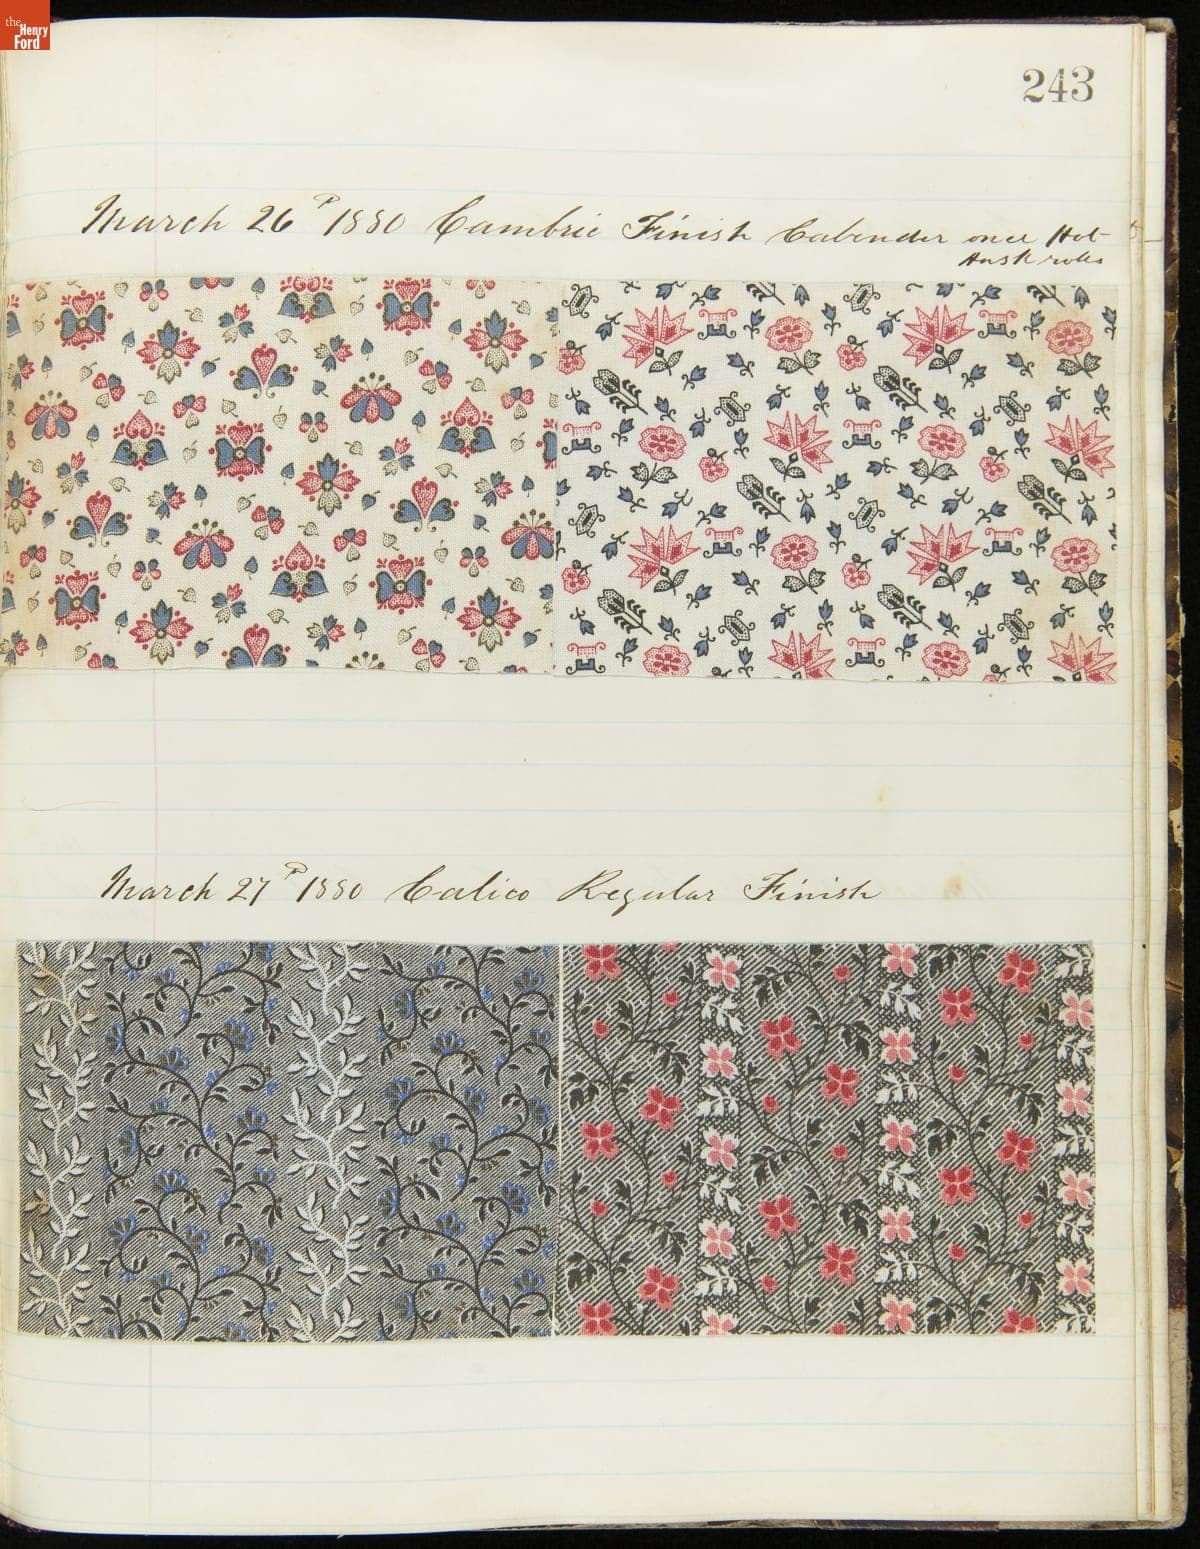 the
Henry
Ford
243
March 26th 1880 Cambric Finish Calender once Hot
Husk rolls
March 27th 1880 Calico Regular Finish